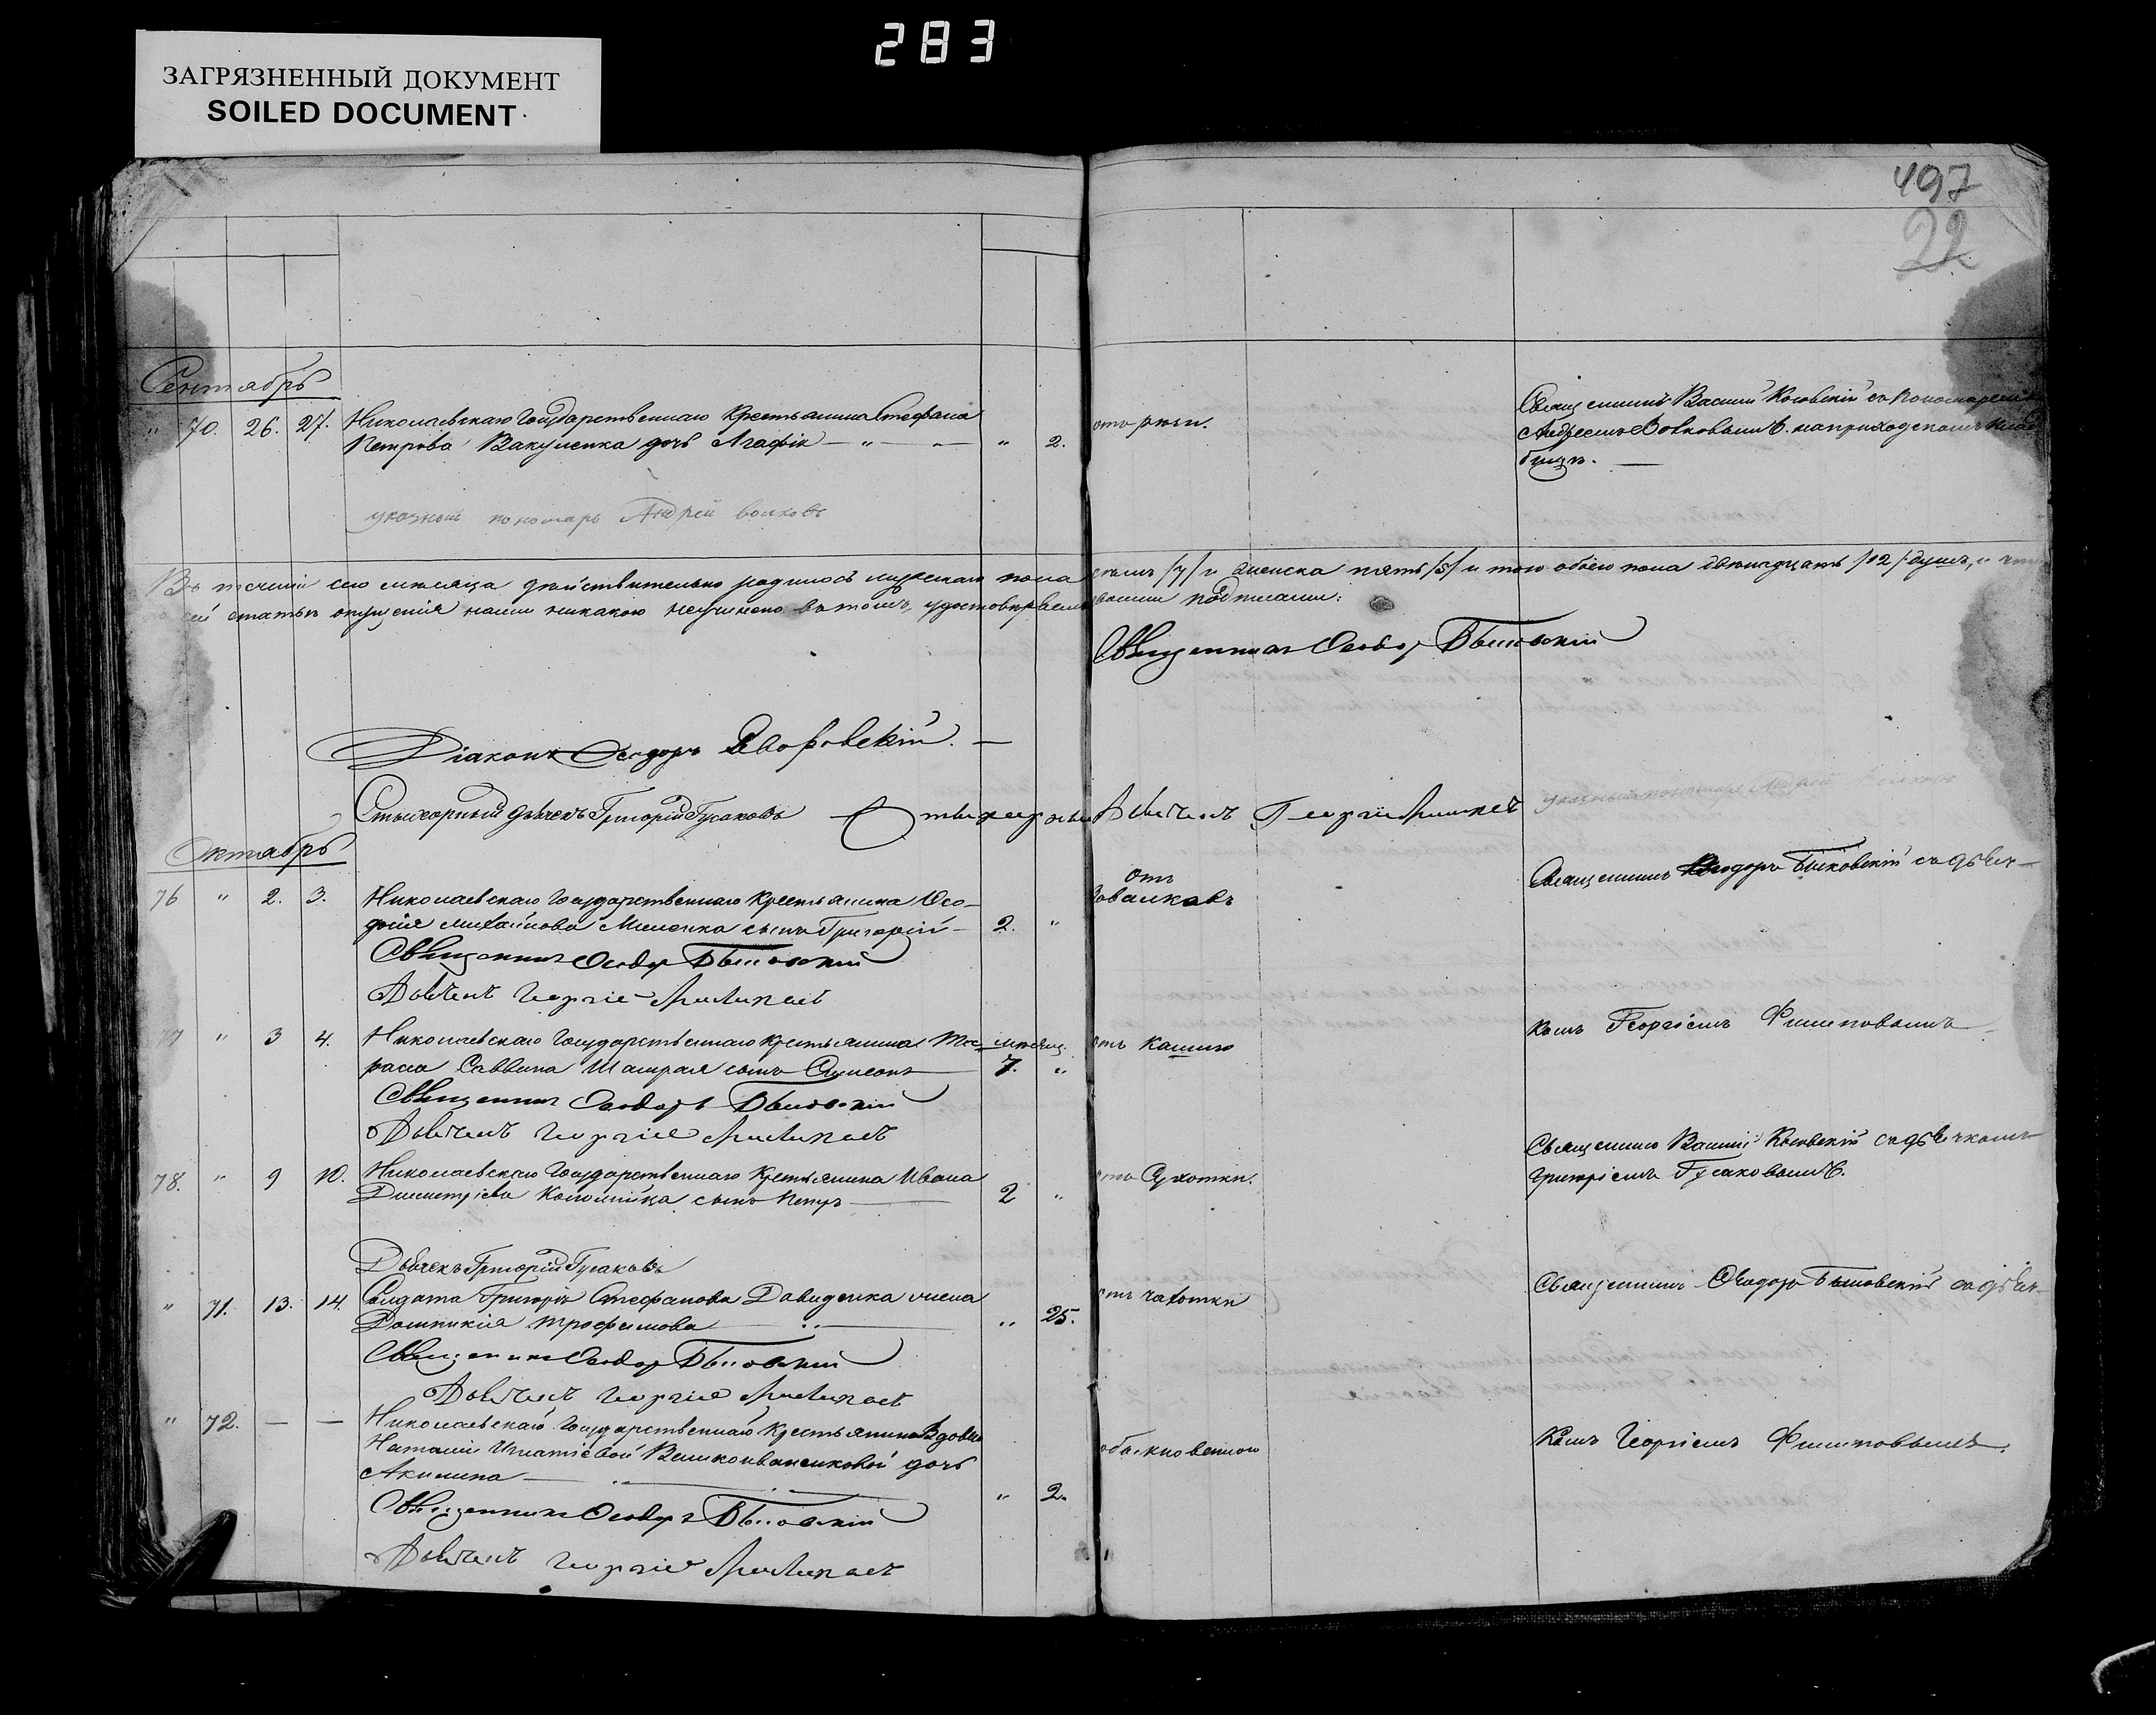 283
ЗАГРЯЗНЕННЫЙ ДОКУМЕНТ
SOILED DOCUMENT
497
22
Сентябрь
" 70. 26. 27. Николаевскаго Государственнаго Крестьянина Стефана
Петрова Вакуленка дочь Агафія — " — " 2.
Священникъ Василій со Пономаремъ
Андреемъ Волковымъ. на приходскомъ
указный пономарь Андрей Волковъ
Въ теченіи сего мѣсяца дѣйствительно родилось мужескаго пола семь /7/ и женска пять /5/ и того обоего пола двѣнадцать /12/ душъ, и что
сей статьи опущенія нами никакого неучинено въ томъ удостовѣряемъ подписами:
Священникъ Ѳеодоръ
Діаконъ Ѳеодоръ Яворовскій. —
Стихарный дьячекъ Григорій Гусаковъ Стихарный Дьячекъ Георгій
указный пономарь Андрей Волковъ
Октябрь
76 " 2. 3. Николаевскаго Государственнаго Крестьянина Ѳео-
Михайлова сынъ Григорій — 2. "
отъ
Священникъ Ѳеодоръ съ дьяч-
Священникъ Ѳеодоръ
Дьячекъ Георгій
77 " 3 4. Николаевскаго Государственнаго Крестьянина Та- мѣсяц.
раса Саввина сынъ 7. "
отъ кашлю
комъ Георгіемъ Филиповымъ
Священникъ Ѳеодоръ
Дьячекъ Георгій
78. " 9 10. Николаевскаго Государственнаго Крестьянина Ивана
Дмитріева Коломійца сынъ Петръ 2 "
отъ Сухотки.
Священникъ Василій съ дьячкомъ
Григоріемъ Гусаковымъ.
Дьячекъ Григорій Гусаковъ
" 71. 13. 14. Солдата Григорія Стефанова Давиденка жена
Домникія Трофимова " 25.
отъ чахотки
Священникъ Ѳеодоръ съ дьяч-
Священникъ Ѳеодоръ
Дьячекъ Георгій
" 72. — — Николаевскаго Государственнаго Крестьянина Вдовы
Наталіи Игнатіевой дочь
Акилина " 2.
обыкновенно
комъ Георгіемъ Филиповымъ.
Священникъ Ѳеодоръ
Дьячекъ Георгій